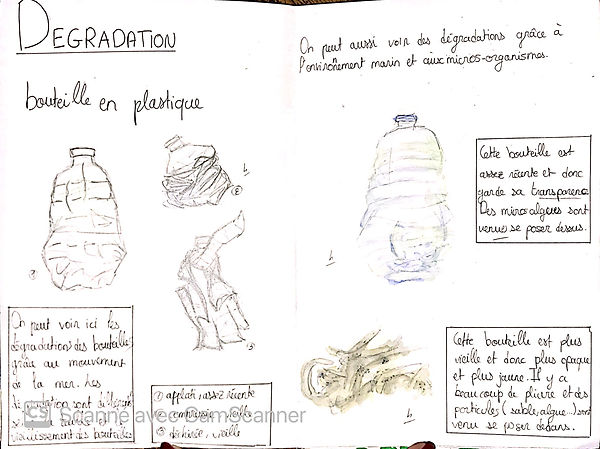 DEGRADATION
bouteille en plastique
1
2
3
On peut voir ici les
dégradations des bouteilles
grâce au mouvement
de la mer. Les
dégradation sont différent
vieillissement des bouteilles
① applati, assez récente
② compressé, vieille
③ déchirée, vieille
Scanné avec CamScanner
On peut aussi voir des dégradations grâce à
l'environnement marin et aux micros-organismes.
Cette bouteille est
assez récente et donc
garde sa transparence
Des micro algues sont
venue se poser dessus.
Cette bouteille est plus
vieille et donc plus opaque
et plus jaune. Il y a
beaucoup de pliure et des
particules (sable, algue...) sont
venu se poser dedans.